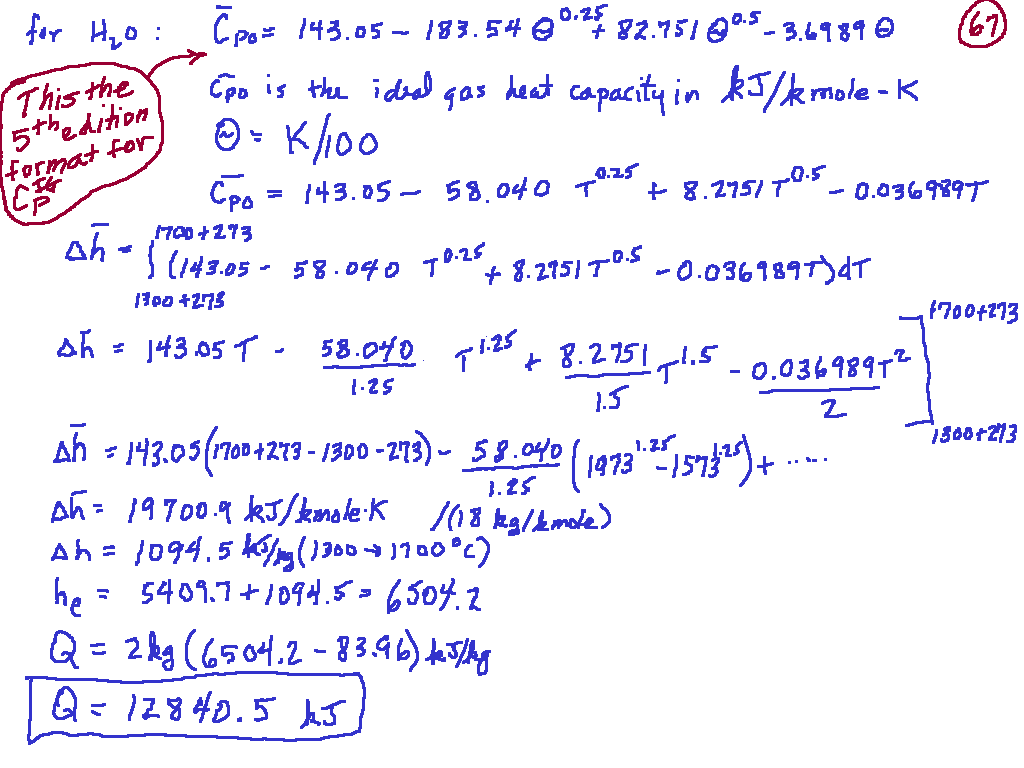 67
for H₂O : C̄po = 143.05 - 183.54 Θ^0.25 + 82.751 Θ^0.5 - 3.6989 Θ
This the
5th edition
format for
C_P^IG
C̄po is the ideal gas heat capacity in kJ/kmole-K
Θ = K/100
C̄po = 143.05 - 58.040 T^0.25 + 8.2751 T^0.5 - 0.036989T
Δh̄ = ∫_{1300+273}^{1700+273} (143.05 - 58.040 T^0.25 + 8.2751 T^0.5 - 0.036989T)dT
Δh̄ = 143.05 T - 58.040/1.25 T^1.25 + 8.2751/1.5 T^1.5 - 0.036989T²/2 ]_{1300+273}^{1700+273}
Δh̄ = 143.05(1700+273-1300-273) - 58.040/1.25 (1973^1.25 - 1573^1.25) + .....
Δh̄ = 19700.9 kJ/kmole·K /(18 kg/kmole)
Δh = 1094.5 kJ/kg (1300→1700°C)
he = 5409.7 + 1094.5 = 6504.2
Q = 2kg (6504.2 - 83.96) kJ/kg
Q = 12840.5 kJ